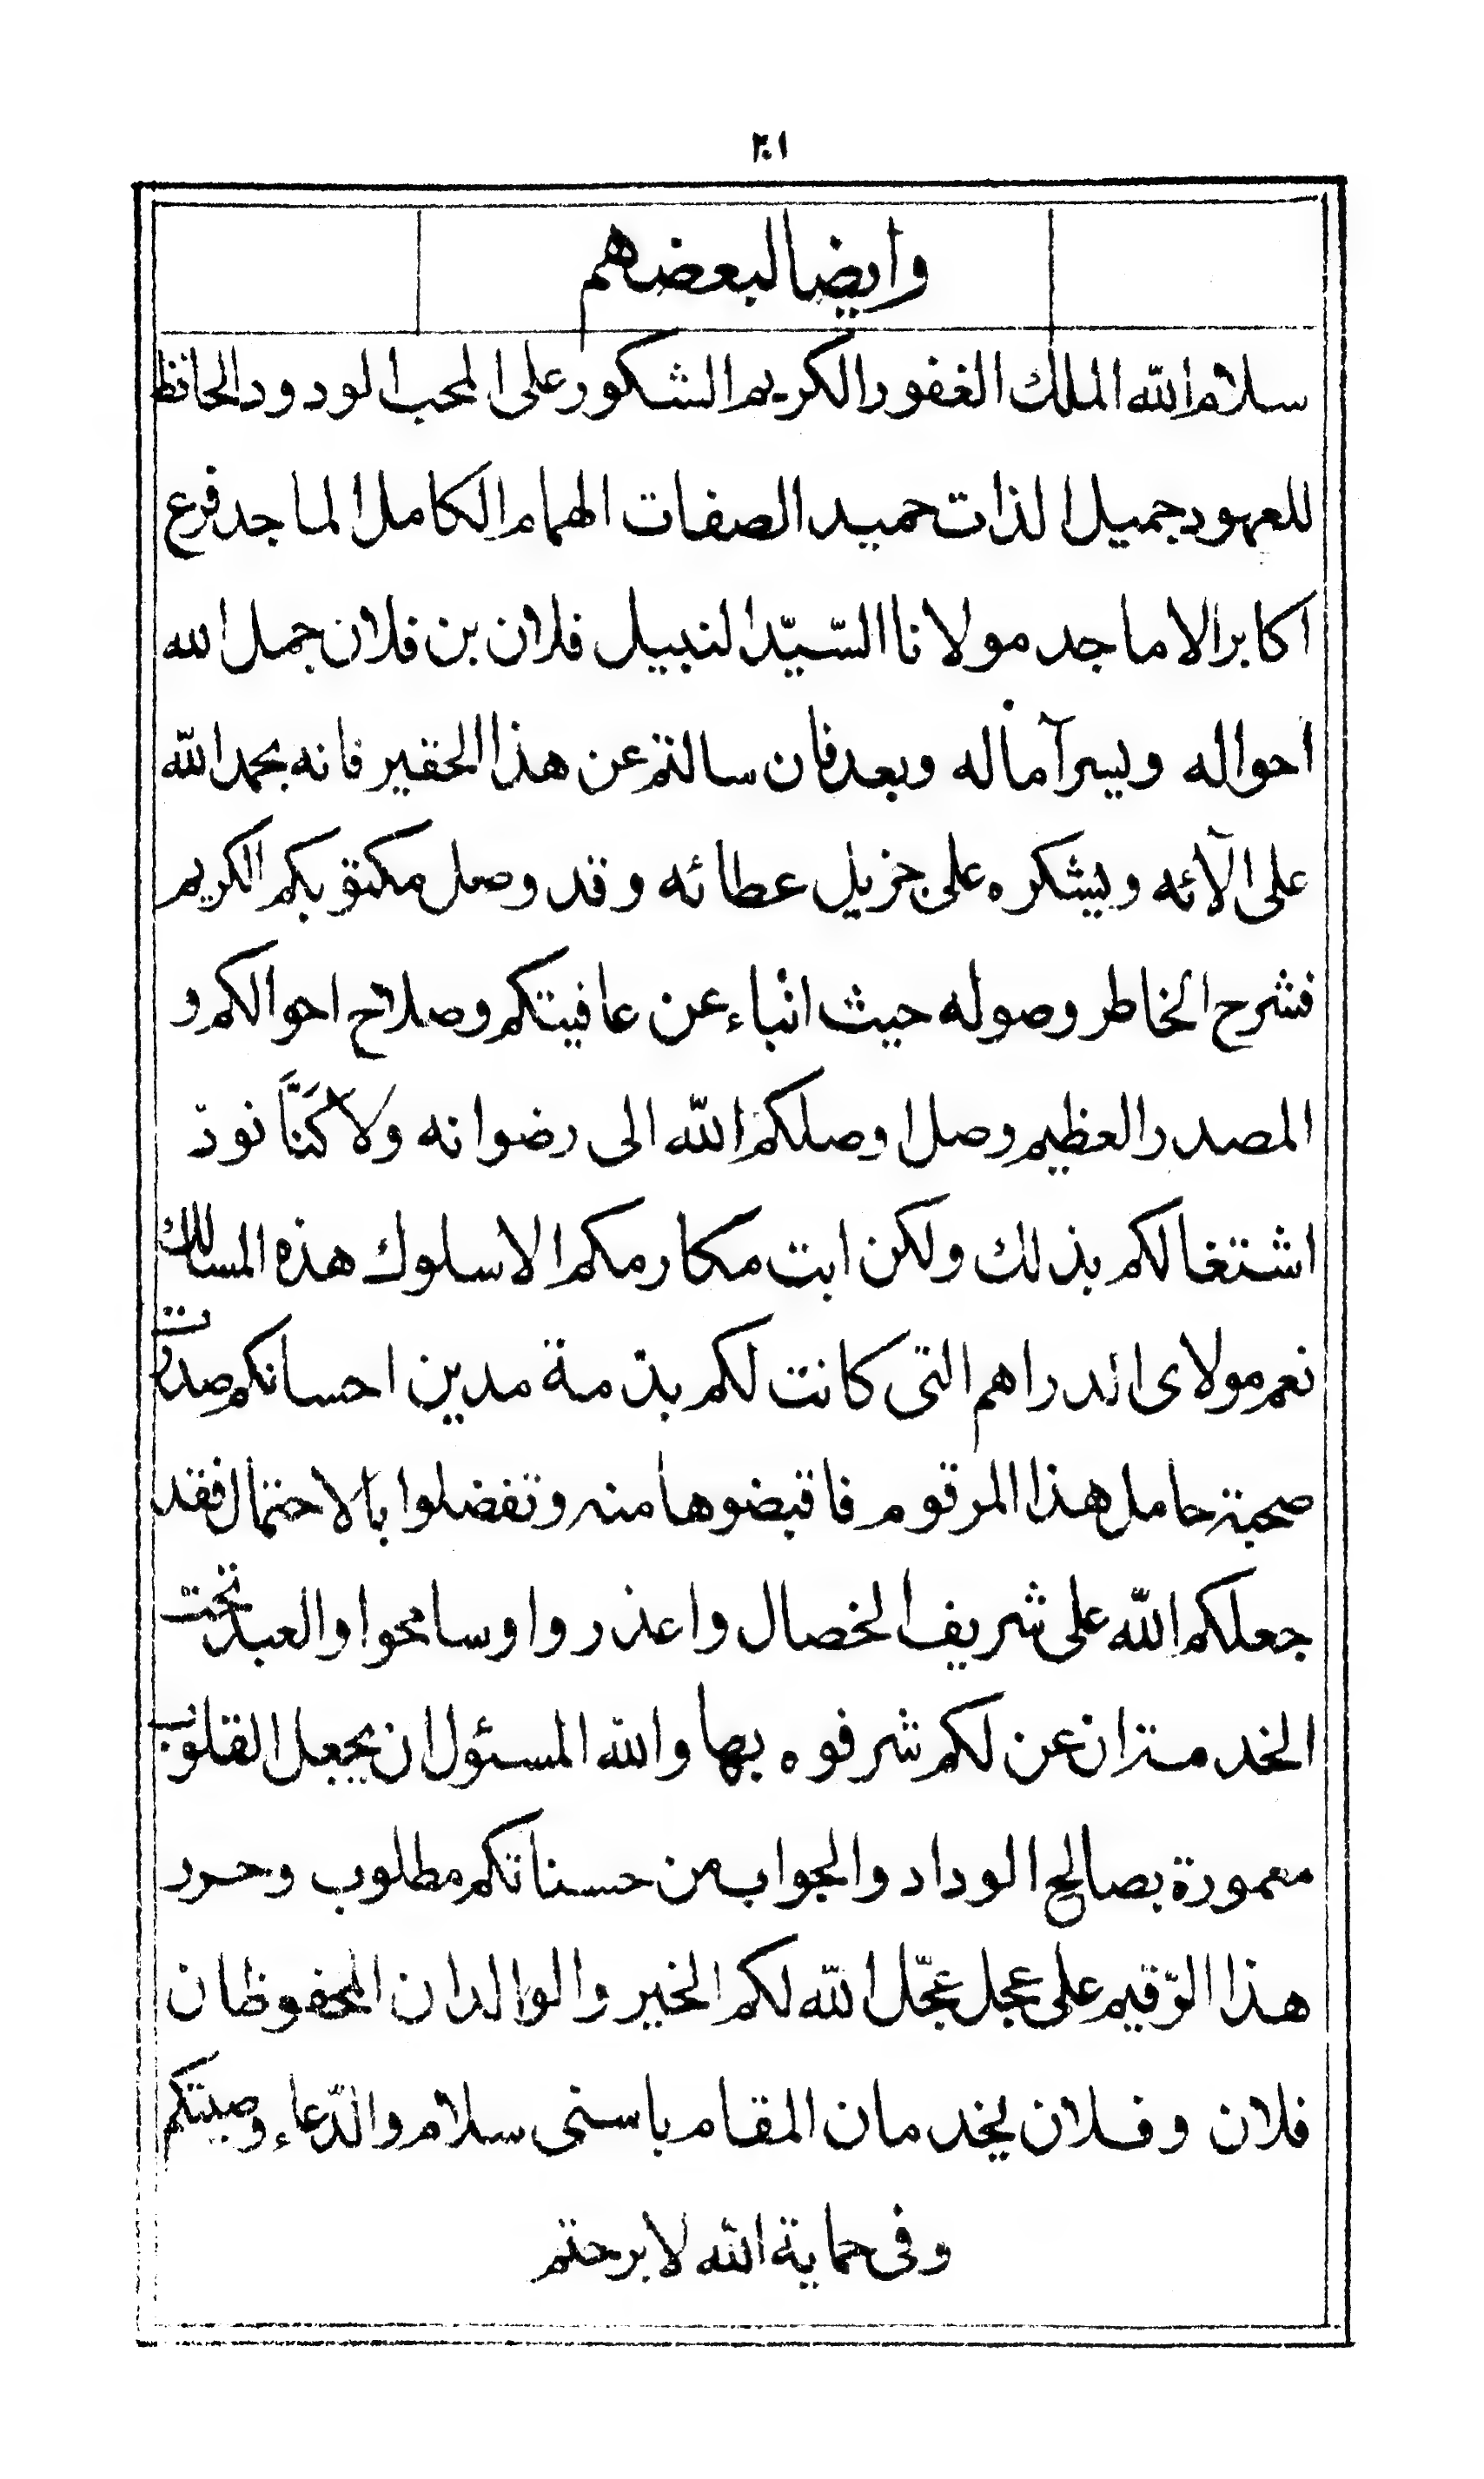 ٢٠١
وايضا لبعضهم
سلام الله الملك الغفور الكريم الشكور على المحب الودود الحافظ
للعهود جميل الذات حميد الصفات الهمام الكامل الماجد فرع
اكابر الاماجد مولانا السّيّد النبيل فلان بن فلان جمل الله
احواله ويسر آماله وبعد فان سالتم عن هذا الحقير فانه بحمد الله
على آلائه ويشكره على جزيل عطائه وقد وصل مكتوبكم الكريم
فشرح الخاطر وصوله حيث انباء عن عافيتكم وصلاح احوالكم و
المصدر العظيم وصل اوصلكم الله الى رضوانه ولا كَنَّا نودّ
اشتغالكم بذلك ولكن ابت مكارمكم الا سلوك هذه المسالك
نعم مولاى الدراهم التى كانت لكم بذمة مدين احسانكم صدرت
صحبة حامل هذا المرقوم فاقبضوها منه وتفضلوا بالاحتمال فقد
جعلكم الله على شريف الخصال واعذروا وسامحوا والعبد تحت
الخدمة ان عن لكم شرفوه بها والله المسئول ان يجعل القلوب
معمورة بصالح الوداد والجواب من حسناتكم مطلوب وحرر
هذا الرّقيم على عجل عجّل الله لكم الخير والوالدان المحفوظان
فلان وفلان يخدمان المقام باسنى سلام والدّعاء وصيتكم
وفى حماية الله لا برحتم